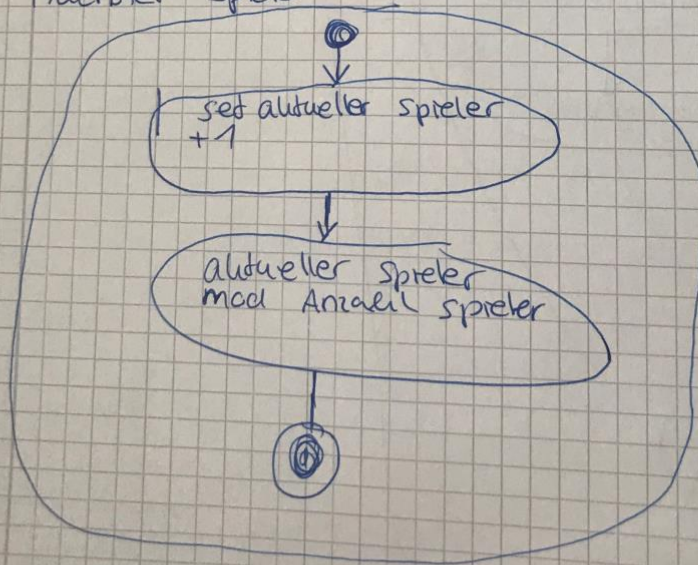 set aktueller spieler
+1
aktueller spieler
mod Anzahl spieler